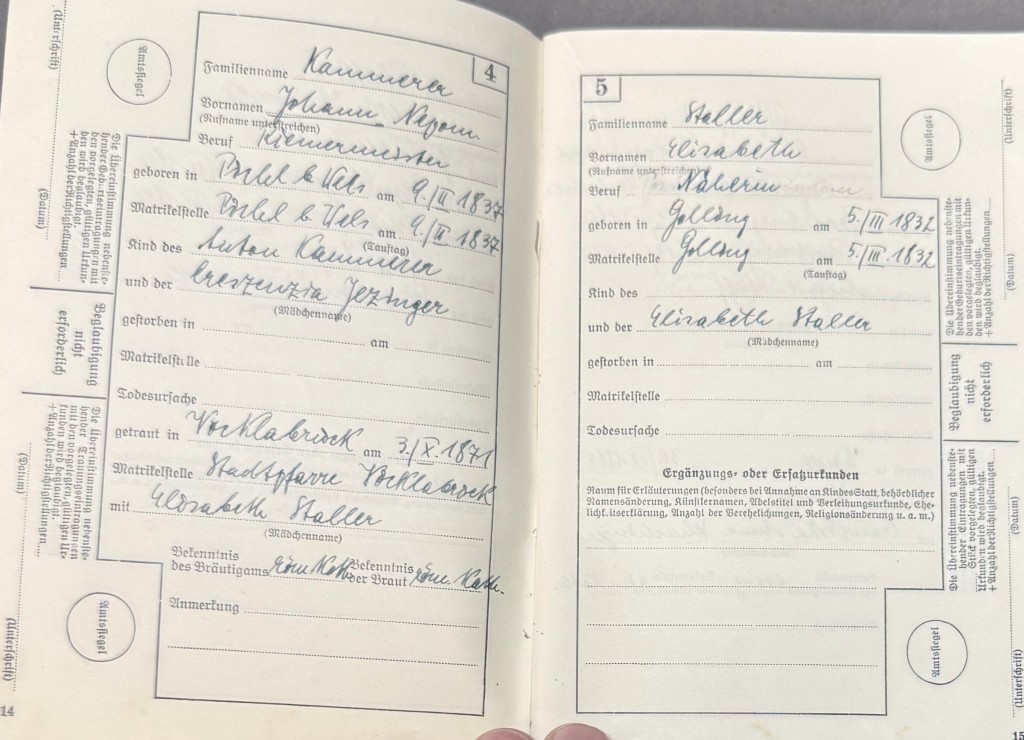 4
Familienname Kammerer
Vornamen Johann Nepom.
(Rufname unterstreichen)
Beruf Riemermeister
geboren in Pichl b Wels am 9./II 1837
Matrikelstelle Pichl b Wels am 9./II 1837
(Tauftag)
Kind des Anton Kammerer
und der Creszenzia Jezinger
(Mädchenname)
gestorben in am
Matrikelstelle
Todesursache
getraut in Vöcklabruck am 3./X. 1871
Matrikelstelle Stadtpfarre Vöcklabruck
mit Elisabeth Staller
(Mädchenname)
Bekenntnis des Bräutigams röm Kath Bekenntnis der Braut röm. Kath.
Anmerkung
(Unterschrift)
Amtssiegel
(Datum)
Die Übereinstimmung nebenste-
hender Geburtseintragungen mit
den vorgelegten, gültigen Urkun-
den wird beglaubigt.
+ Anzahl der Richtigstellungen
Beglaubigung
nicht
erforderlich
Die Übereinstimmung nebenste-
hender Trauungseintragungen
mit den vorgelegten, gültigen Ur-
kunden wird beglaubigt.
+ Anzahl der Richtigstellungen
(Datum)
Amtssiegel
(Unterschrift)
14
5
Familienname Staller
Vornamen Elisabeth
(Rufname unterstreichen)
Beruf Näherin
geboren in Golling am 5./III 1832
Matrikelstelle Golling am 5./III. 1832
(Tauftag)
Kind des
und der Elisabeth Staller
(Mädchenname)
gestorben in am
Matrikelstelle
Todesursache
Ergänzungs- oder Ersatzurkunden
Raum für Erläuterungen (besonders bei Annahme an Kindes Statt, behördlicher
Namensänderung, Künstlernamen, Adelstitel und Verleihungsurkunde, Ehe-
lichkeitserklärung, Anzahl der Verehelichungen, Religionsänderung u. a. m.)
Amtssiegel
(Unterschrift)
Die Übereinstimmung nebenste-
hender Geburtseintragungen mit
den vorgelegten, gültigen Urkun-
den wird beglaubigt.
+ Anzahl der Richtigstellungen
(Datum)
Beglaubigung
nicht
erforderlich
Die Übereinstimmung nebenste-
hender Eintragungen mit
Stück vorgelegten, gültigen
Urkunden wird beglaubigt.
+ Anzahl der Richtigstellungen
(Datum)
Amtssiegel
(Unterschrift)
15